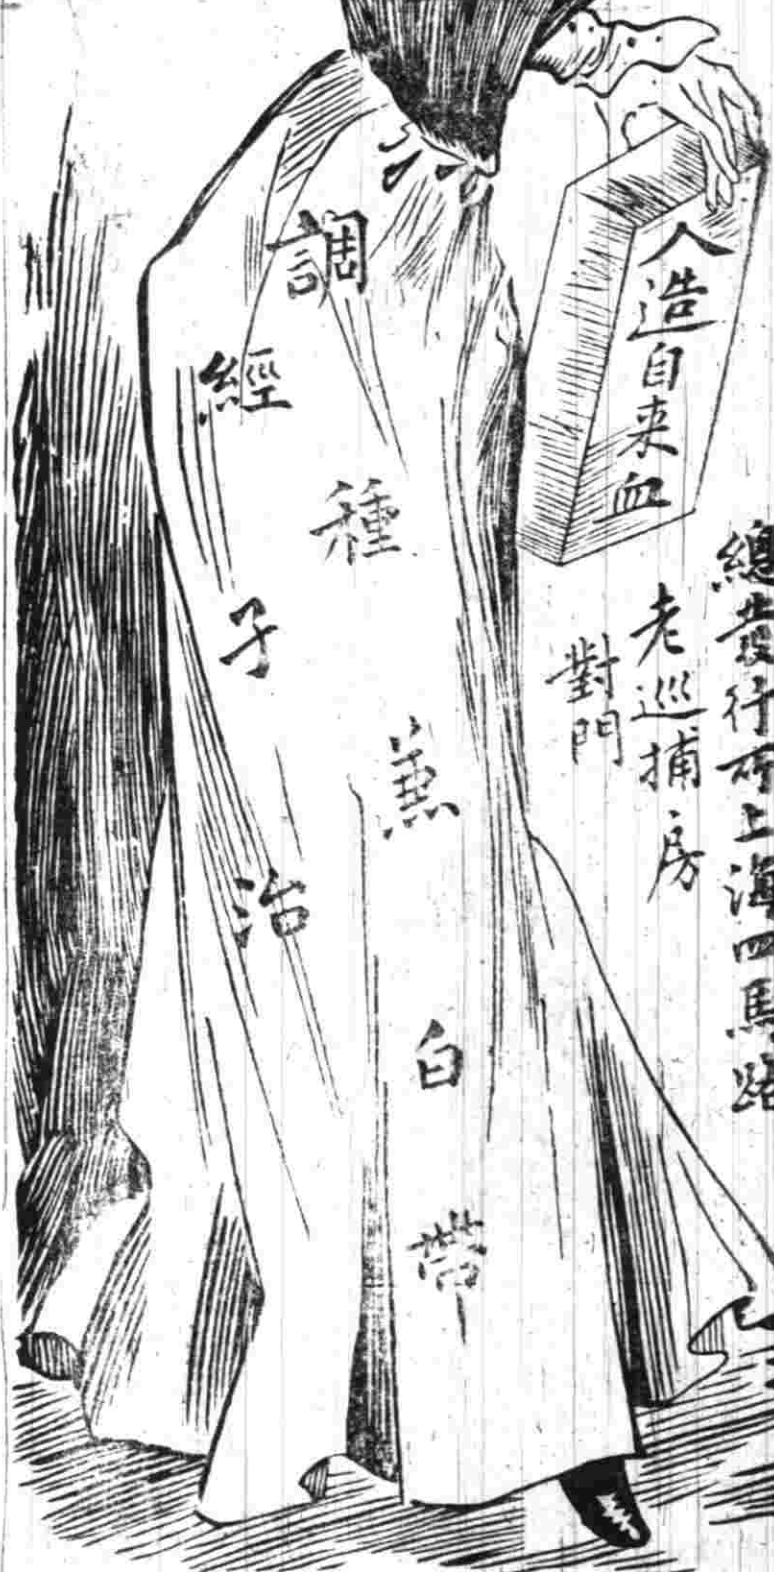 人造自来血
總發行所上海四馬路
老巡捕房
對門
調經種子兼治白帶